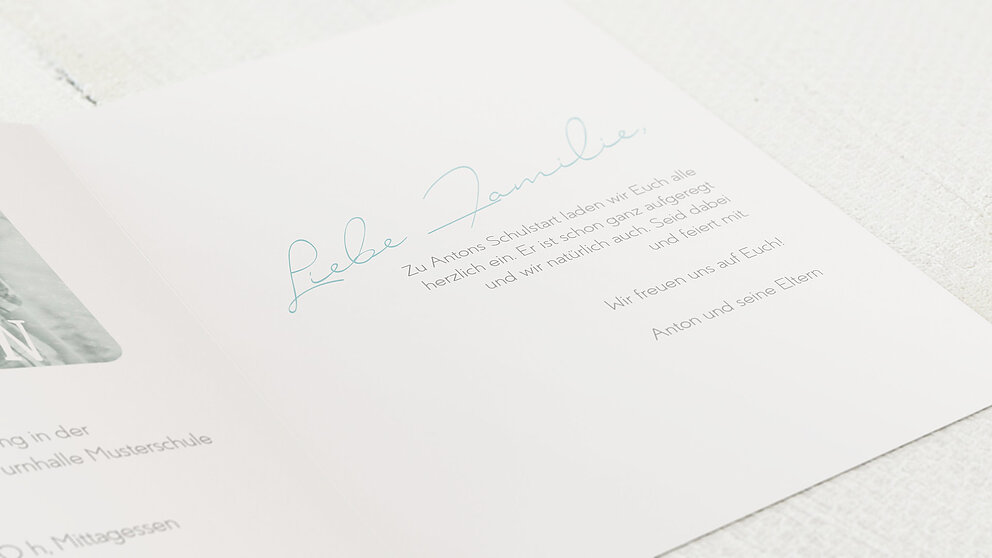 N
ng in der
urnhalle Musterschule
0 h, Mittagessen
Liebe Familie,
Zu Antons Schulstart laden wir Euch alle
herzlich ein. Er ist schon ganz aufgeregt
und wir natürlich auch. Seid dabei
und feiert mit.
Wir freuen uns auf Euch!
Anton und seine Eltern